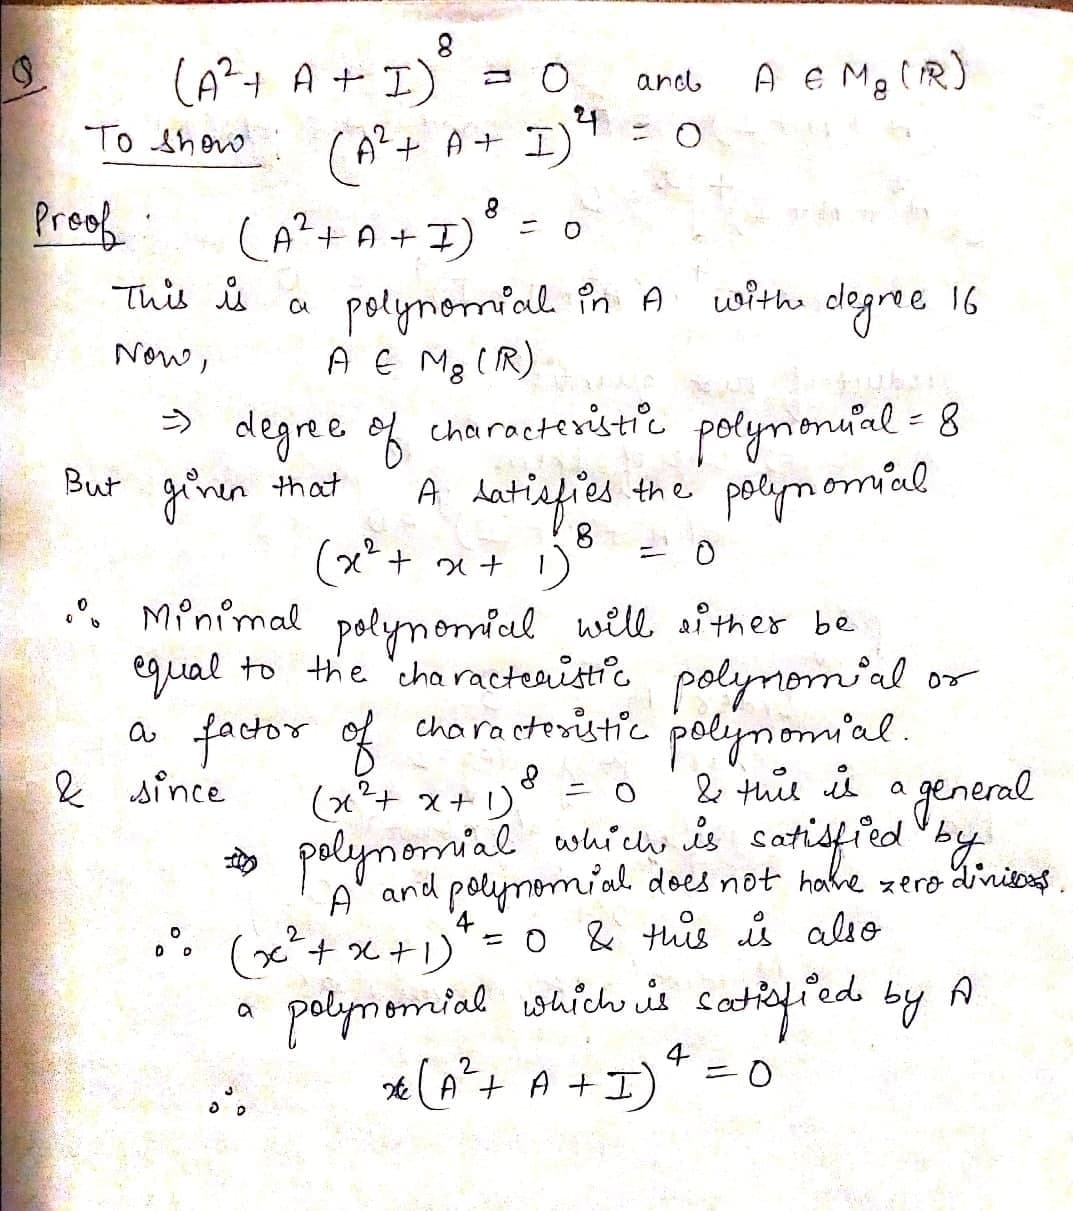 Q (A²+ A + I)⁸ = 0 and A ∈ M₈(ℝ)
To show : (A²+ A+ I)⁴ = 0
Proof : (A²+A+I)⁸ = 0
This is a polynomial in A with degree 16
Now, A ∈ M₈(ℝ)
⇒ degree of characteristic polynomial = 8
But given that A satisfies the polynomial
(x²+ x + 1)⁸ = 0
∴ Minimal polynomial will either be
equal to the characteristic polynomial or
a factor of characteristic polynomial.
& since (x²+ x+1)⁸ = 0 & this is a general
⇒ polynomial which is satisfied by
A and polynomial does not have zero divisors.
∴ (x²+x+1)⁴ = 0 & this is also
a polynomial which is satisfied by A
∴ (A²+ A + I)⁴ = 0